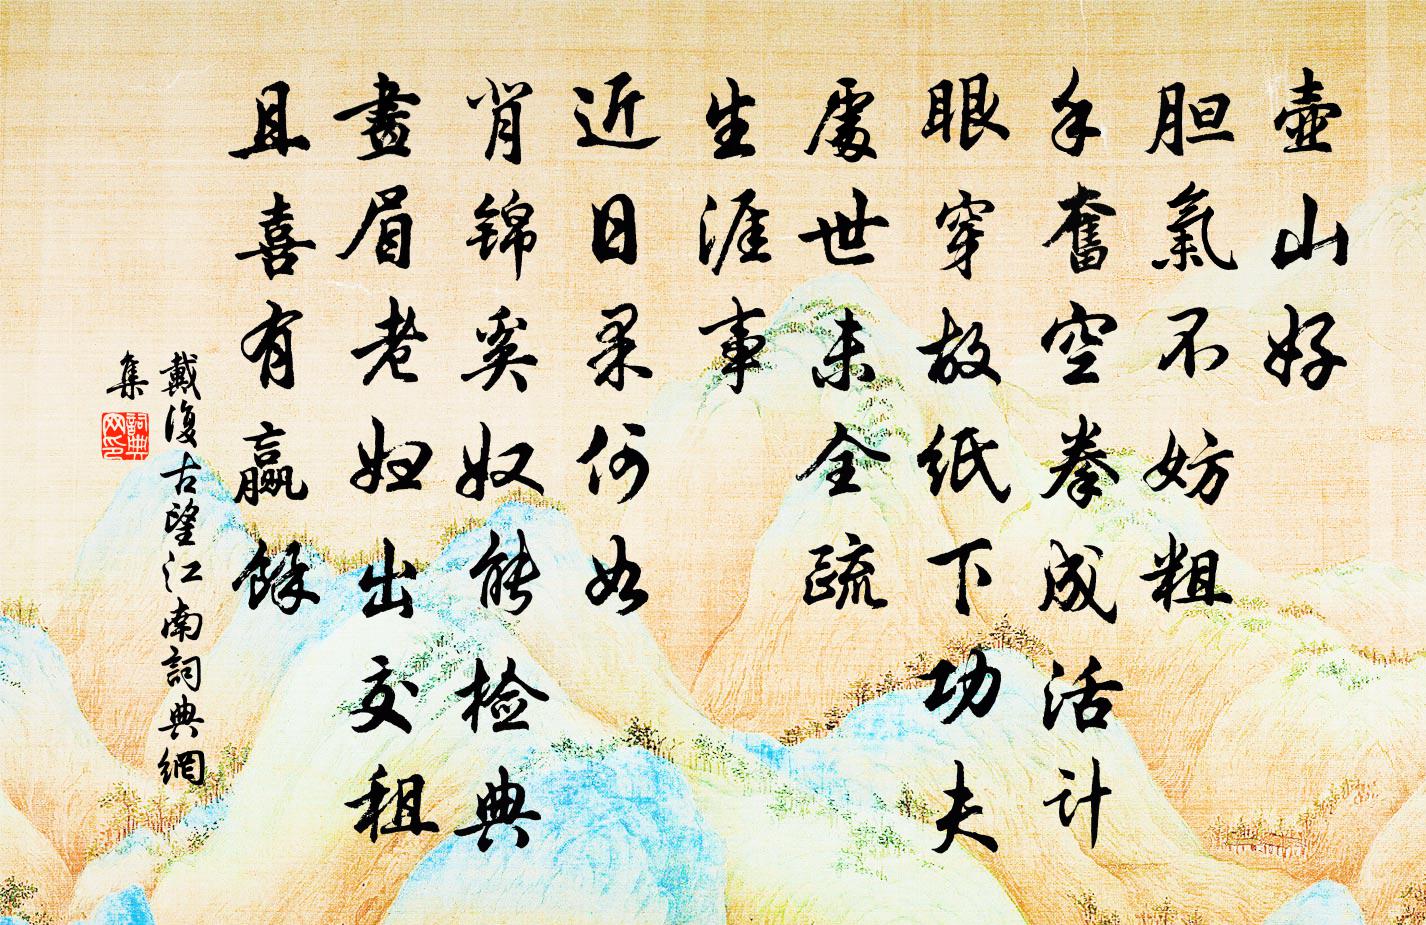 壺山好
胆氣不妨粗
手奮空拳成活計
眼穿故紙下功夫
處世未全疏
生涯事
近日果何如
背錦奚奴能检典
畫眉老妇出交租
且喜有贏餘
戴復古望江南詞典網
集
詞典
网印